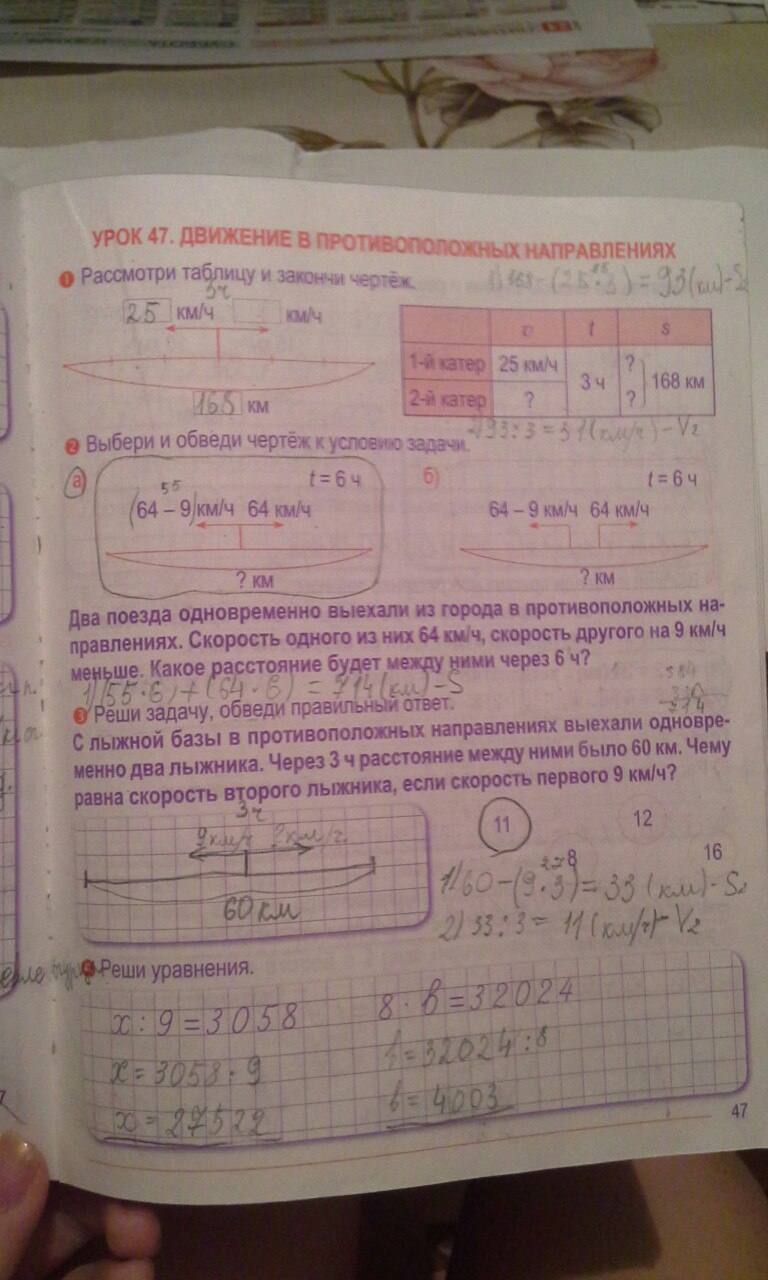 УРОК 47. ДВИЖЕНИЕ В ПРОТИВОПОЛОЖНЫХ НАПРАВЛЕНИЯХ
1 Рассмотри таблицу и закончи чертёж.
1) 168 - (25 · 3) = 93 (км) - S₂
75
3ч
25 км/ч км/ч
168 км
v t s
1-й катер 25 км/ч 3 ч ? 168 км
2-й катер ? ?
2) 93 : 3 = 31 (км/ч) - V₂
2 Выбери и обведи чертёж к условию задачи.
а) t = 6 ч
55
(64 – 9) км/ч 64 км/ч
? км
б) t = 6 ч
64 – 9 км/ч 64 км/ч
? км
Два поезда одновременно выехали из города в противоположных на-
правлениях. Скорость одного из них 64 км/ч, скорость другого на 9 км/ч
меньше. Какое расстояние будет между ними через 6 ч?
1) (55 · 6) + (64 · 6) = 714 (км) - S
384
330
714
3 Реши задачу, обведи правильный ответ.
С лыжной базы в противоположных направлениях выехали одновре-
менно два лыжника. Через 3 ч расстояние между ними было 60 км. Чему
равна скорость второго лыжника, если скорость первого 9 км/ч?
3ч
9км/ч ?км/ч
60 км
11 12
8 16
27
1) 60 - (9 · 3) = 33 (км) - S₂
2) 33 : 3 = 11 (км/ч) - V₂
Реши уравнения.
x : 9 = 3058 8 · b = 32024
x = 3058 · 9 b = 32024 : 8
x = 27522 b = 4003
47